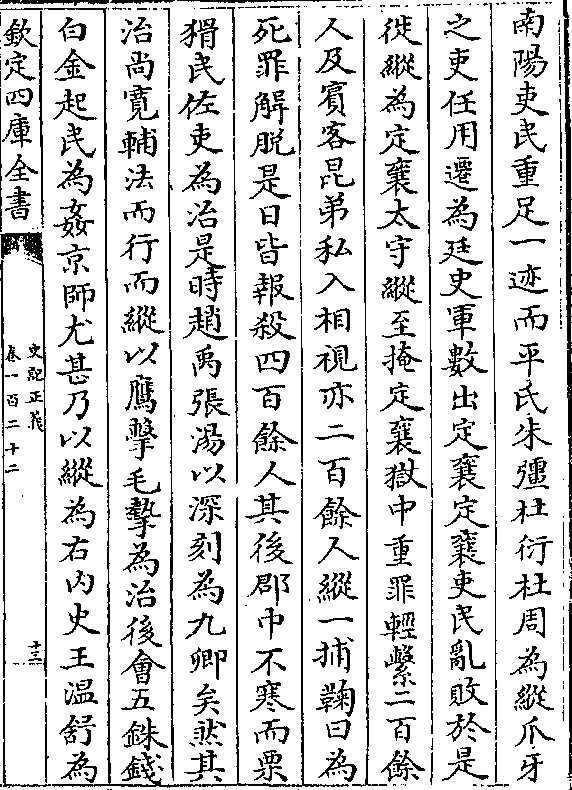 南陽吏民重足一迹而平氏朱彊杜衍杜周為縱爪牙
之吏任用遷為廷史軍數出定襄定襄吏民亂敗於是
徙縱為定襄太守縱至掩定襄獄中重罪輕繫二百餘
人及賓客昆弟私入相視亦二百餘人縱一捕鞠曰為
死罪解脱是日皆報殺四百餘人其後郡中不寒而栗
猾民佐吏為治是時趙禹張湯以深刻為九卿矣然其
治尚寛輔法而行而縱以鷹擊毛摯為治後會五銖錢
白金起民為姦京師尤甚乃以縱為右内史王温舒為
欽定四庫全書
史記正義
卷一百二十二
十三